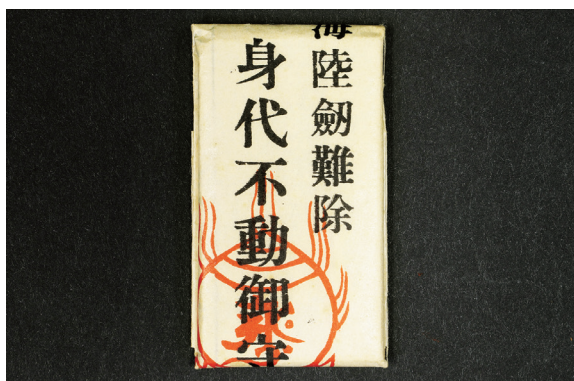 海陸劒難除
身代不動御守